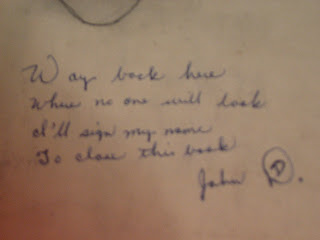 Way back here
Where no one will look
I'll sign my name
To close this book
John D.